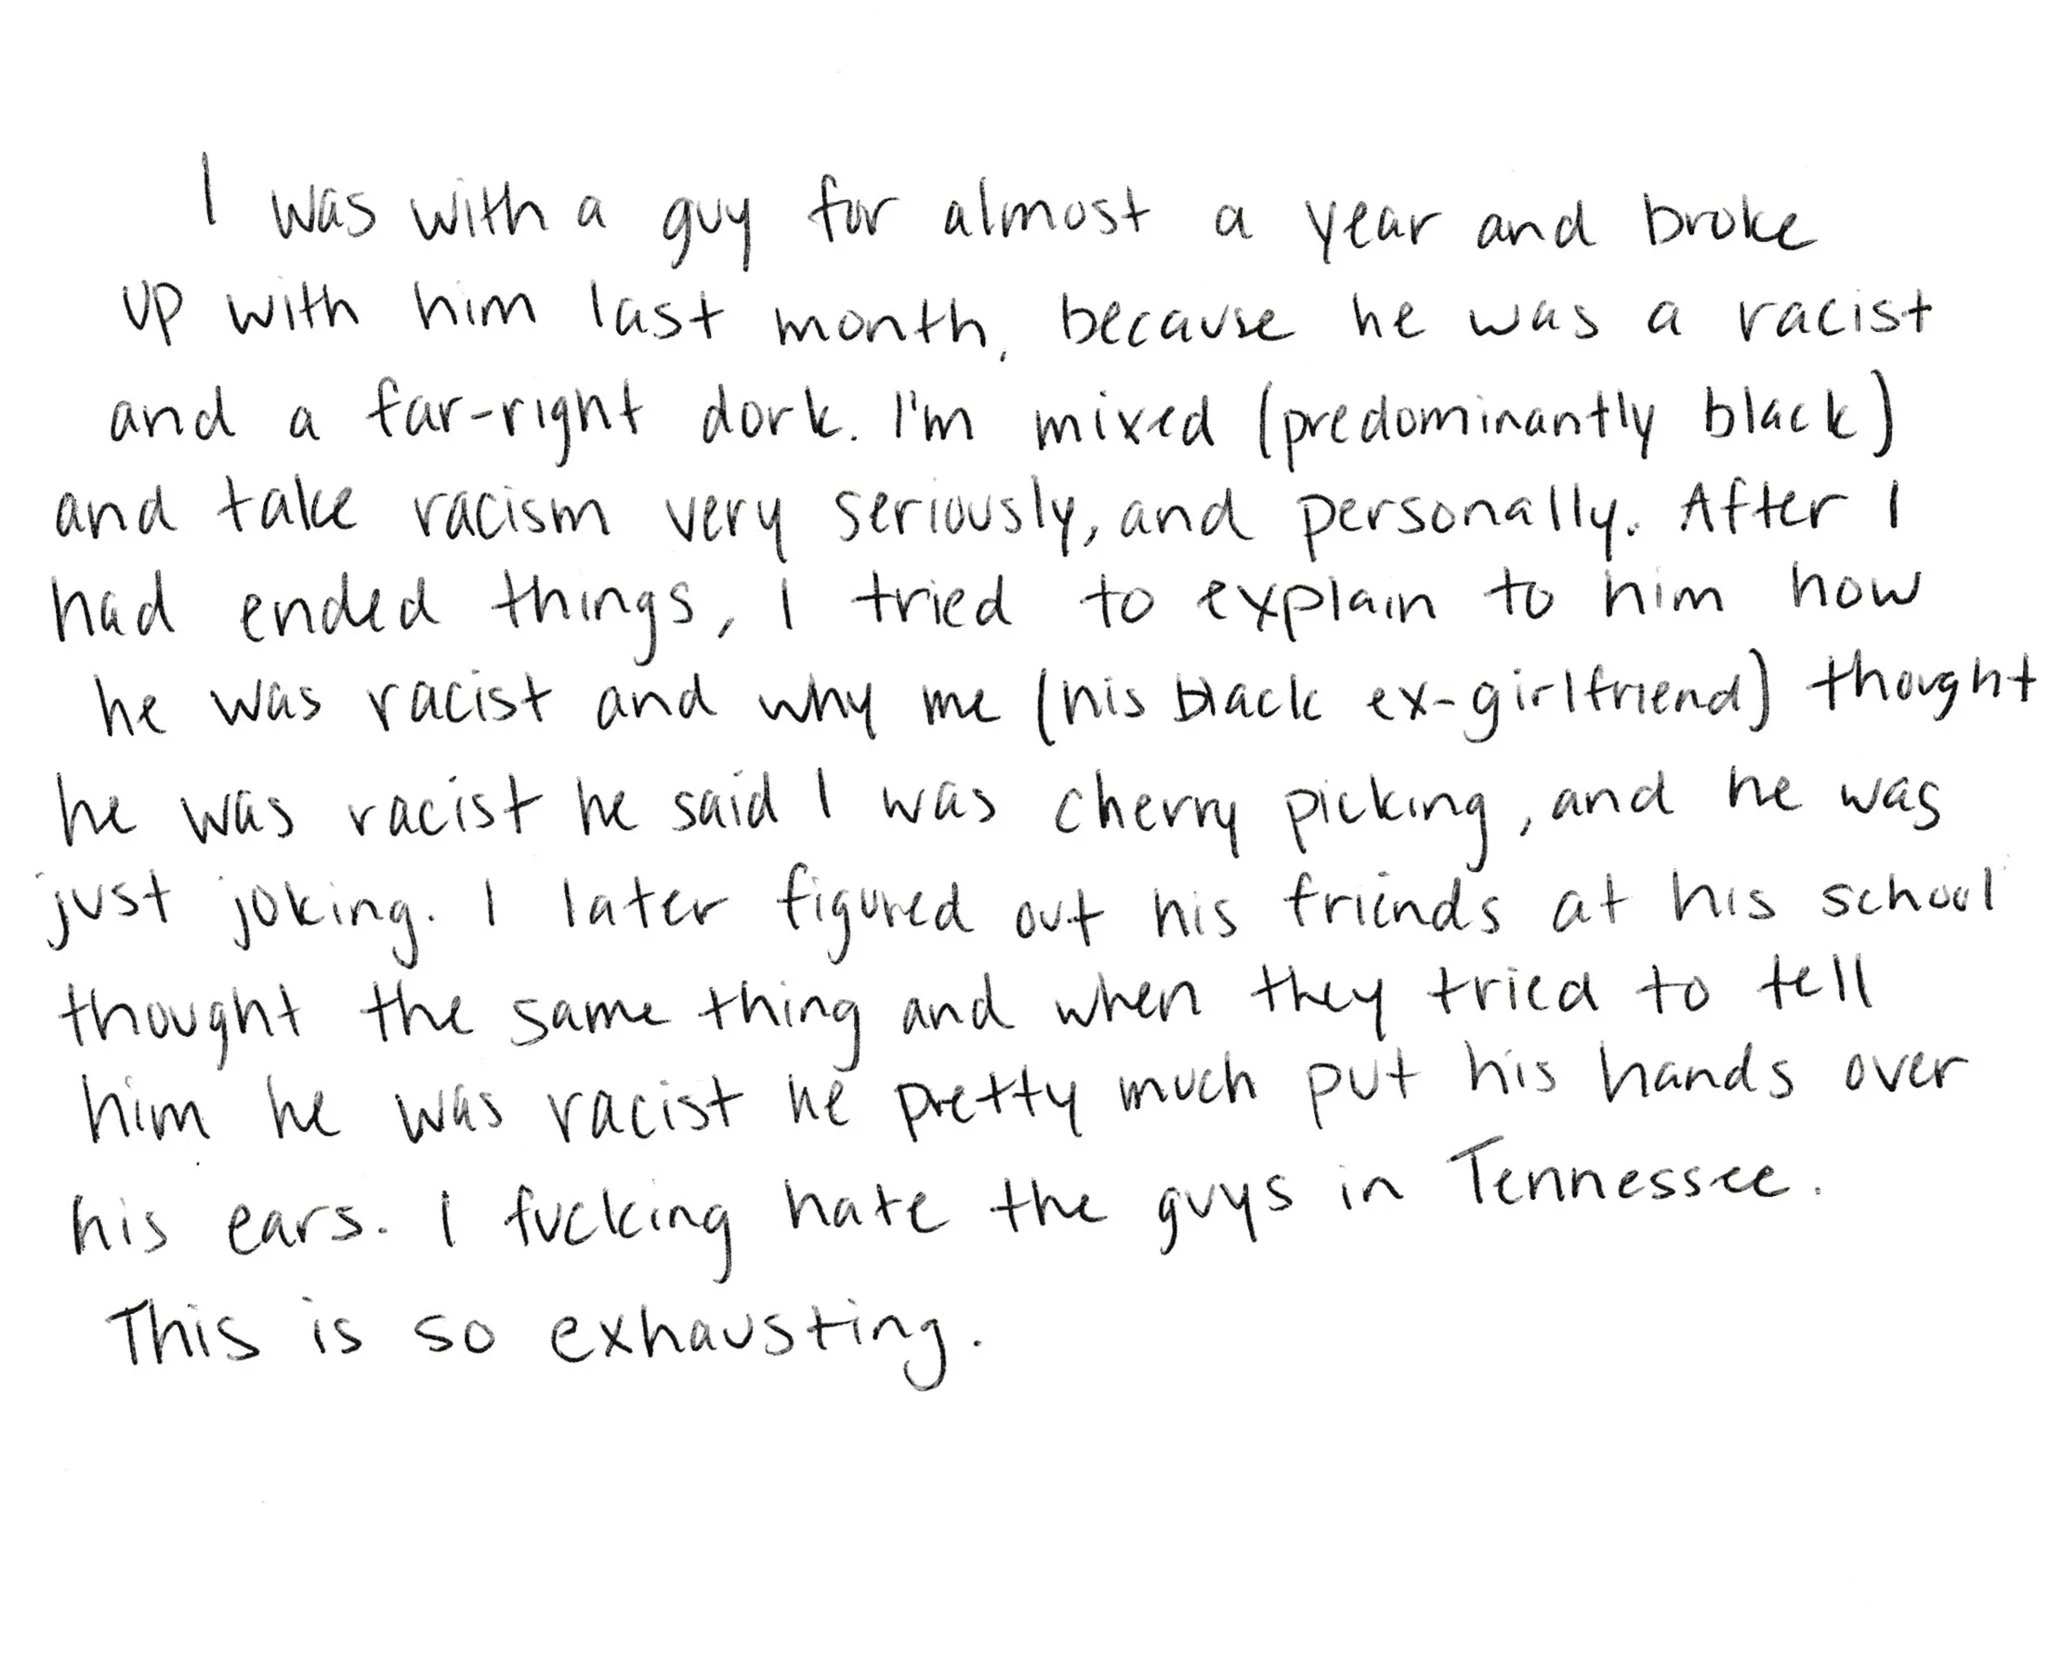 I was with a guy for almost a year and broke
up with him last month, because he was a racist
and a far-right dork. I'm mixed (predominantly black)
and take racism very seriously, and personally. After I
had ended things, I tried to explain to him how
he was racist and why me (his black ex-girlfriend) thought
he was racist he said I was cherry picking, and he was
just joking. I later figured out his friends at his school
thought the same thing and when they tried to tell
him he was racist he pretty much put his hands over
his ears. I fucking hate the guys in Tennessee.
This is so exhausting.